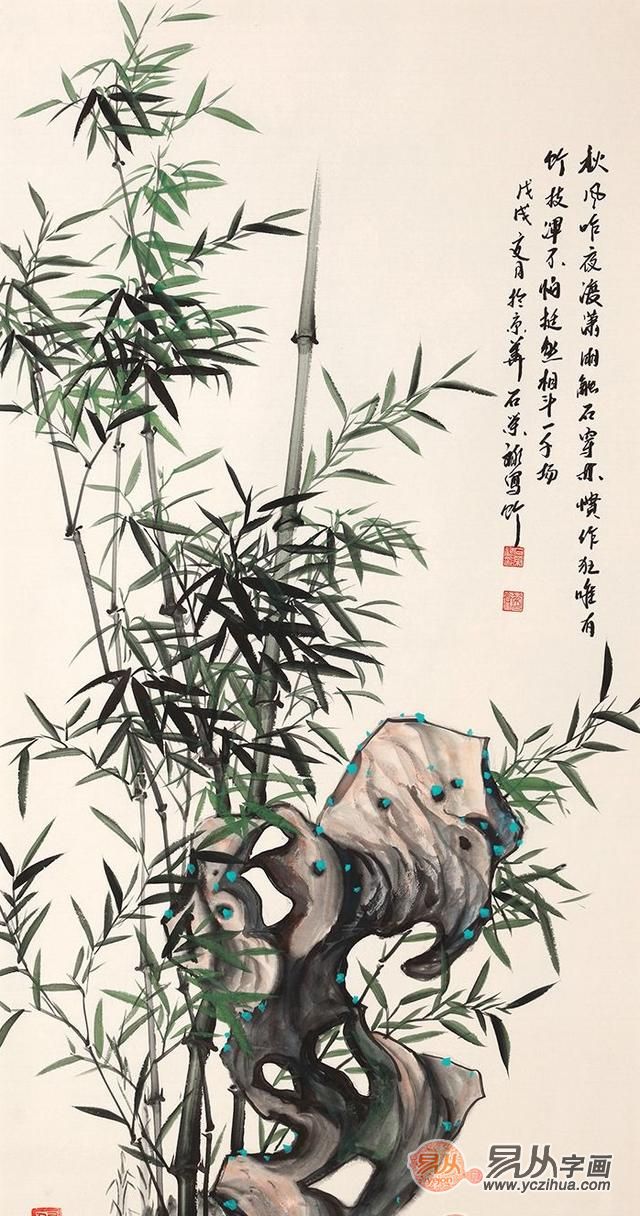 秋风昨夜渡潇湘触石穿林惯作狂唯有
竹枝浑不怕挺然相斗一千场
戊戌夏月於京华石荣禄写竹
易从
yejon
易从字画
www.yczihua.com